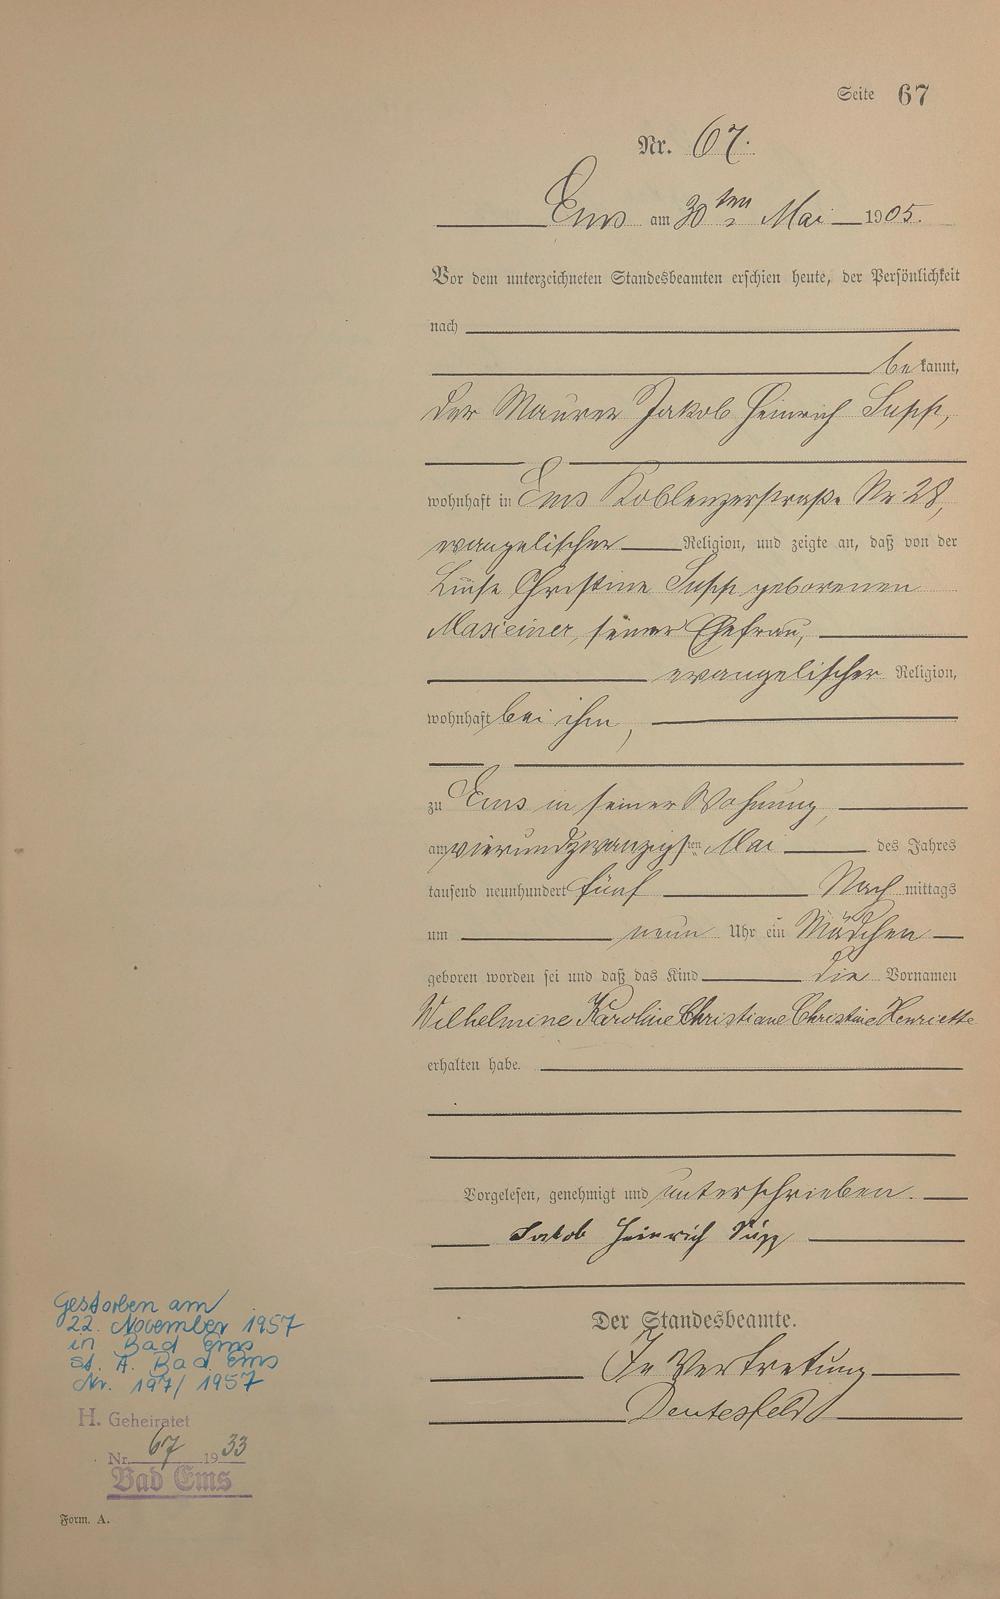 Seite 67
Nr. 67.
Ems am 30ten Mai 1905.
Vor dem unterzeichneten Standesbeamten erschien heute, der Persönlichkeit
nach
bekannt,
der Maurer Jakob Heinrich Supp,
wohnhaft in Ems Koblenzerstraße Nr. 28,
evangelischer Religion, und zeigte an, daß von der
Luise Christine Supp geborenen
Maxeiner, seiner Ehefrau,
evangelischer Religion,
wohnhaft bei ihm,
zu Ems in seiner Wohnung,
am vierundzwanzigsten Mai des Jahres
tausend neunhundert fünf Nachmittags
um neun Uhr ein Mädchen
geboren worden sei und daß das Kind die Vornamen
Wilhelmine Karoline Christiane Christine Henriette
erhalten habe.
Vorgelesen, genehmigt und unterschrieben.
Jakob Heinrich Supp
Der Standesbeamte.
In Vertretung
Deutesfeld
Gestorben am
22. November 1957
in Bad Ems
St. A. Bad Ems
Nr. 197/1957
H. Geheiratet
Nr. 67 1933
Bad Ems
Form. A.